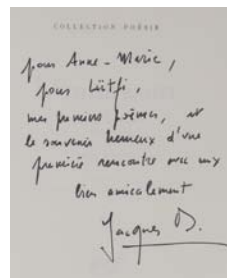 COLLECTION POÉSIE
pour Anne-Marie,
pour Lütfi,
mes premiers poèmes, et
le souvenir heureux d'une
première rencontre avec eux
bien amicalement
Jacques D.